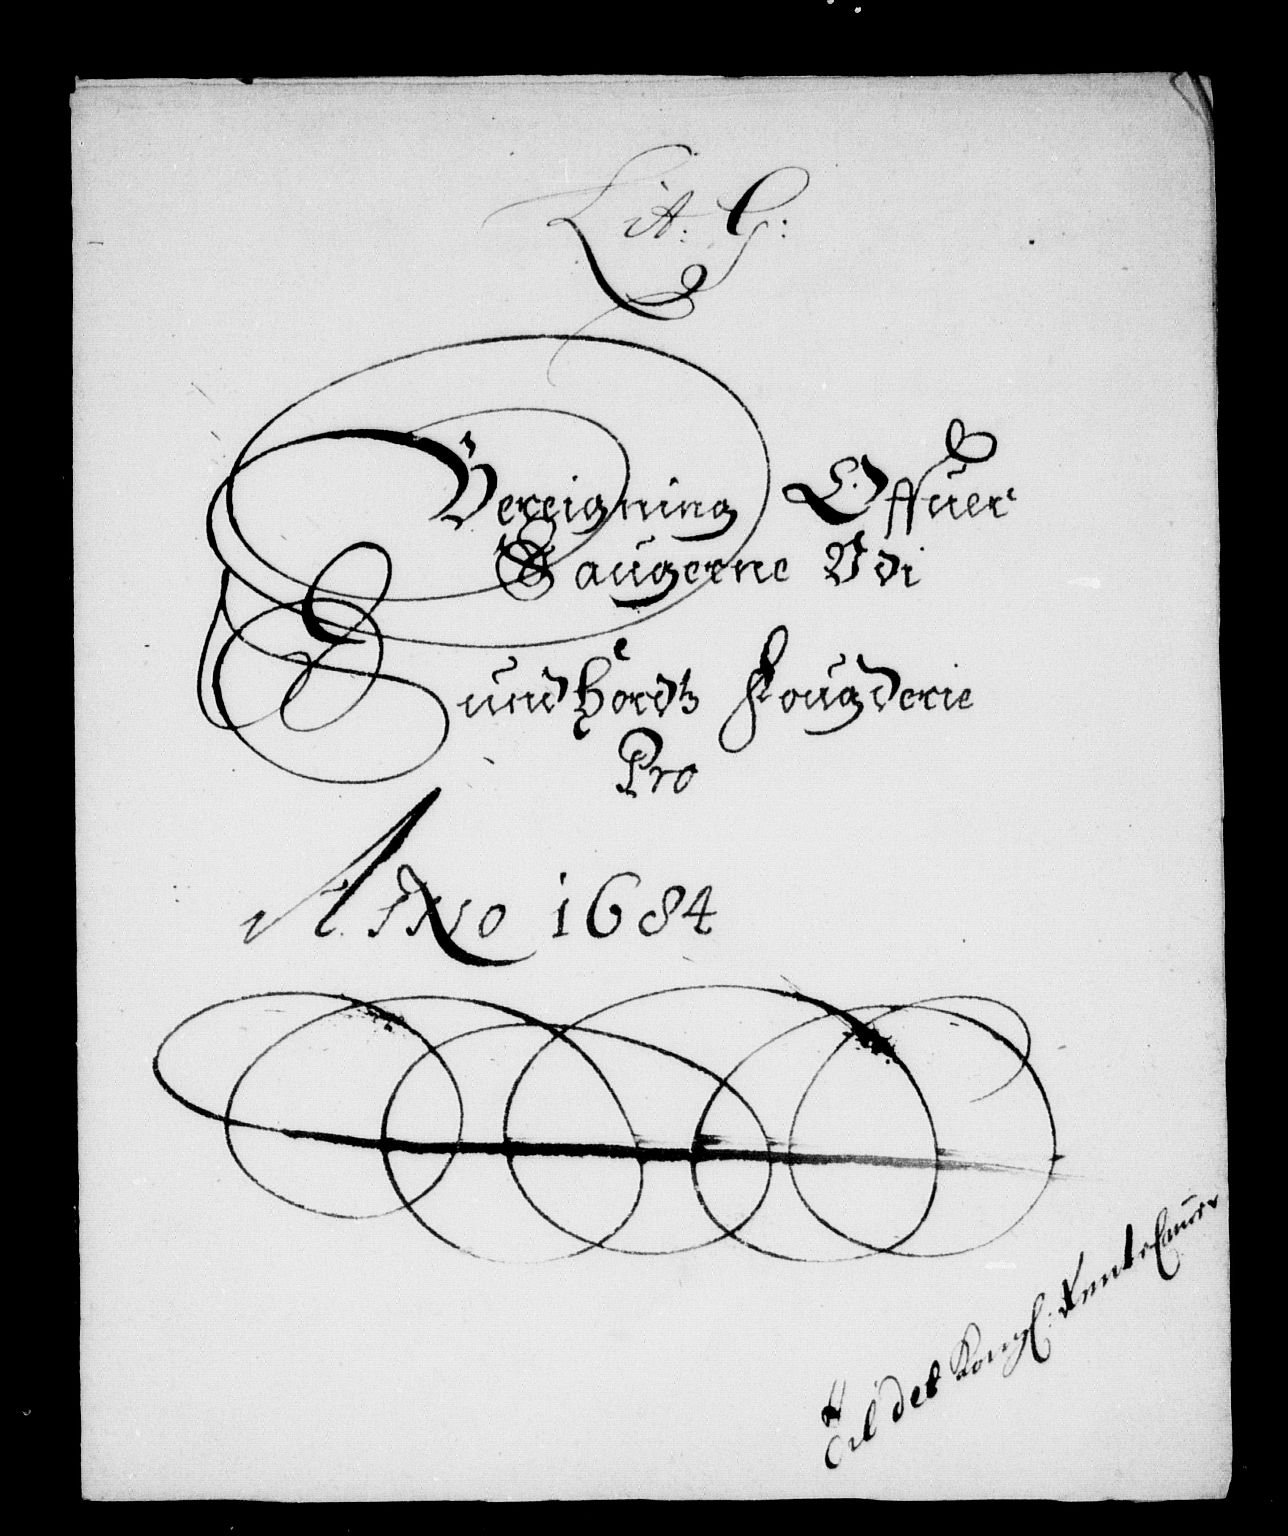 Lit: G:
Bereigning Offuer
Saugerne Vdi
Sundhördtz Fougderie
Pro
Anno 1684
Til det Kongl: Rente Camer